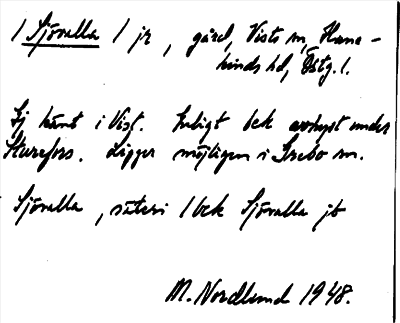 / Sjövalla / jr, gård, Vists sn, Hane-
kinds hd, Östg. l.
Ej känt i Vist. Enligt bek avhyst under
Sturefors. Ligger möjligen i Grebo sn.
Sjövalla, säteri / bek Sjövalla jb
M. Nordlund 1948.